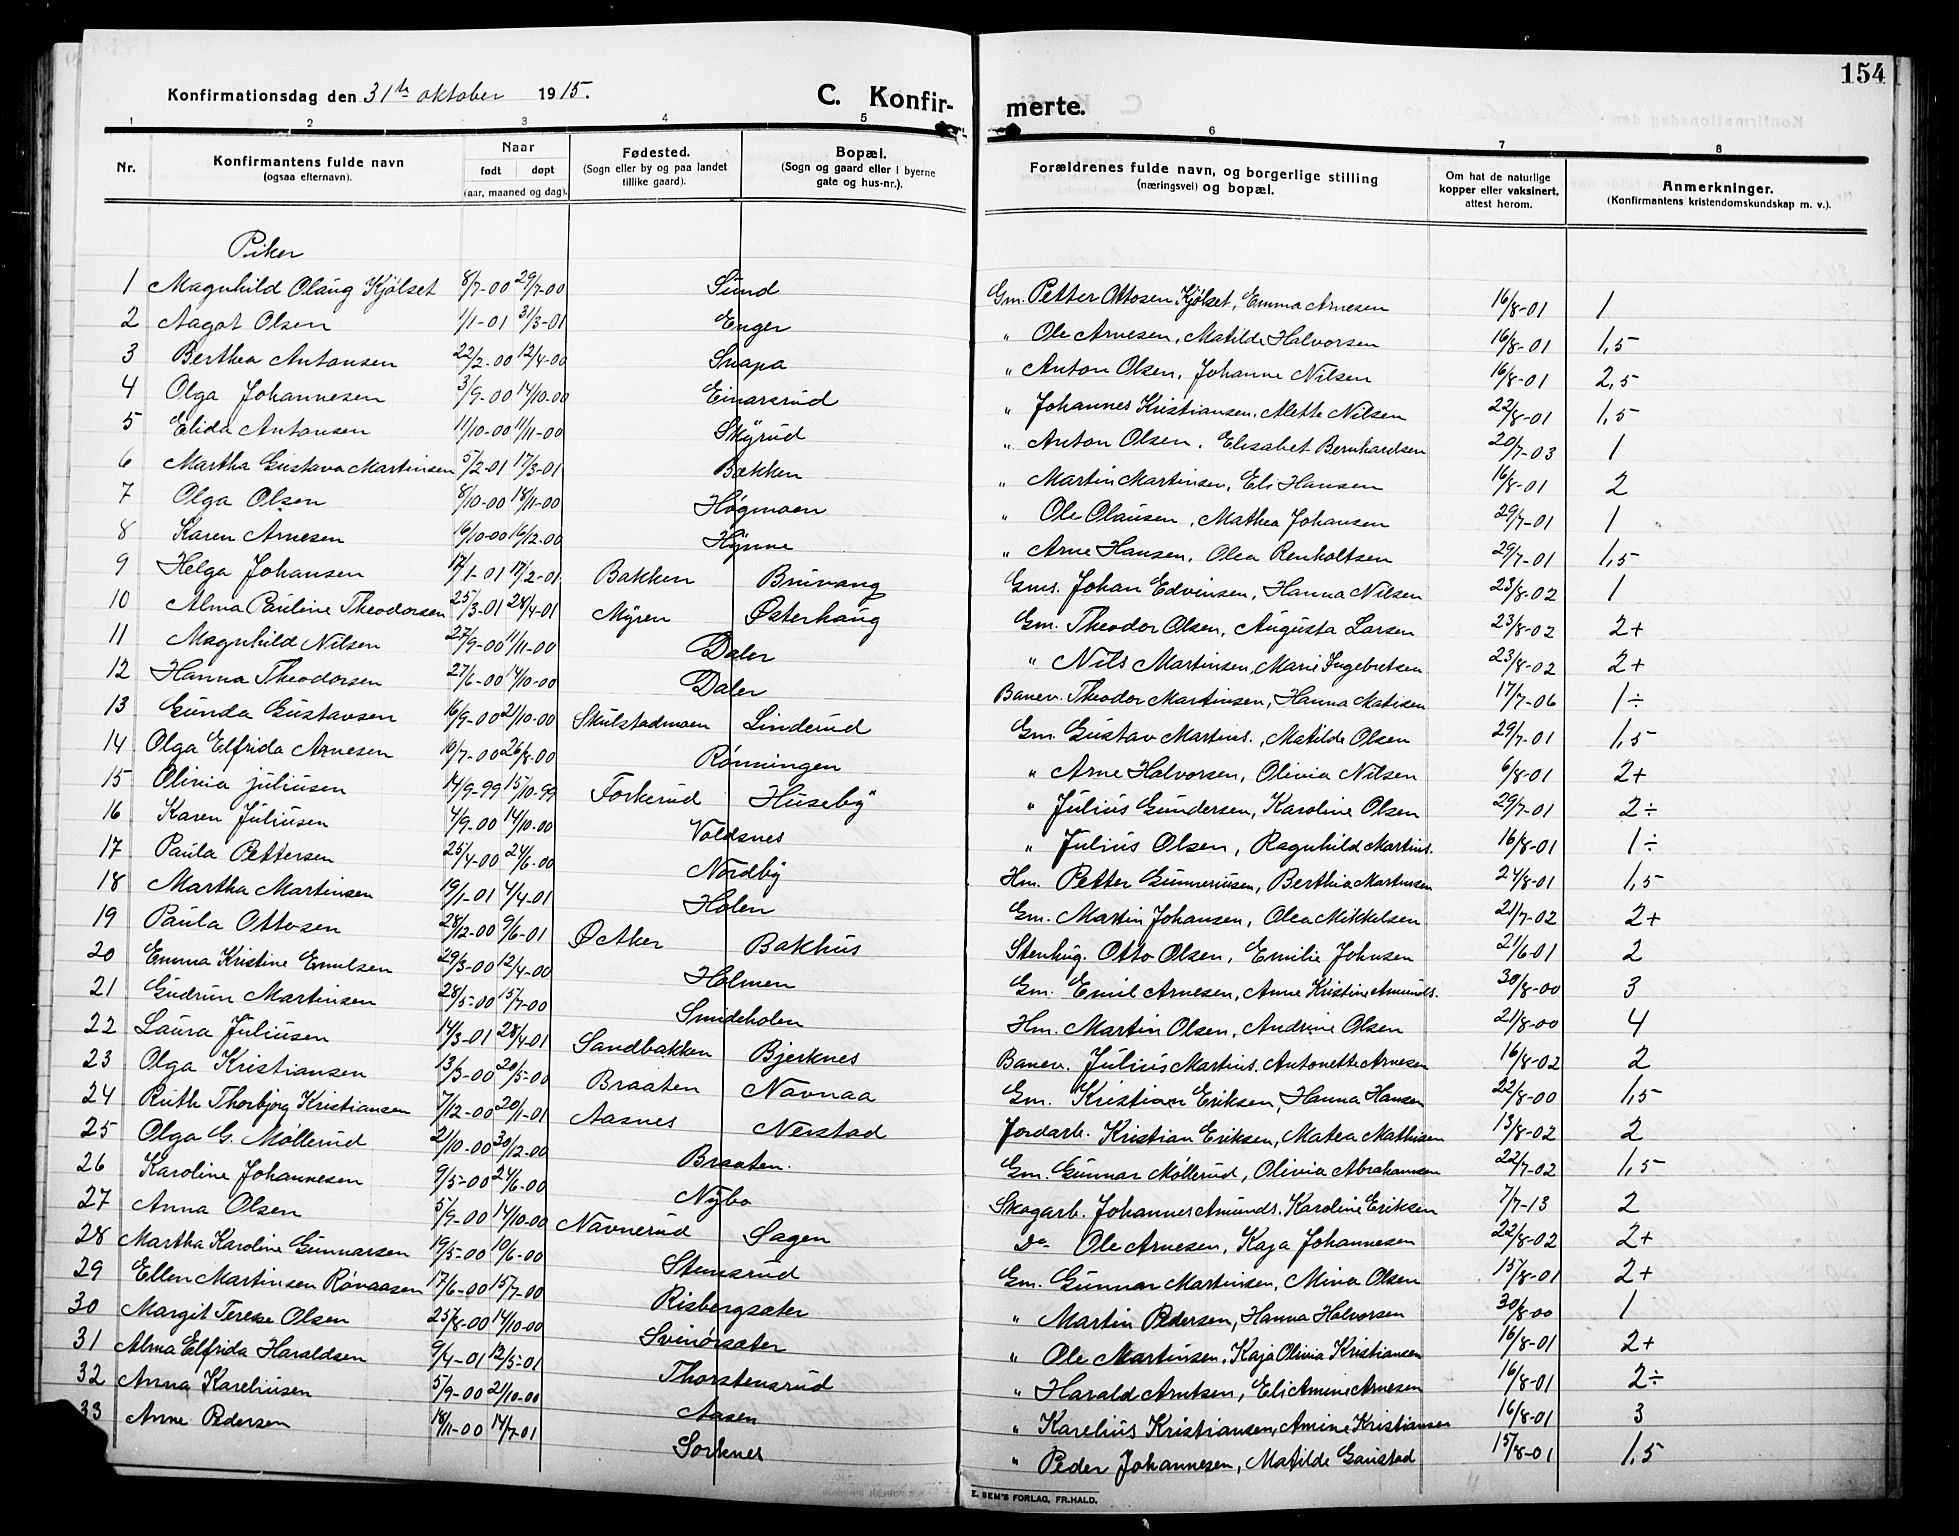 154
Konfirmationsdag den 31te oktober 1915.
C. Konfirmerte.
1 2 3 4 5 6 7 8
Nr. Konfirmantens fulde navn (ogsaa efternavn). Naar født døpt (aar, maaned og dag). Fødested. (Sogn eller by og paa landet tillike gaard). Bopæl. (Sogn og gaard eller i byerne gate og hus-nr.). Forældrenes fulde navn, og borgerlige stilling (næringsvei) og bopæl. Om hat de naturlige kopper eller vaksinert, attest herom. Anmerkninger. (Konfirmantens kristendomskundskap m. v.).
Piker
1 Magnhild Olaug Kjølset 8/7-00 29/7-00 Sund Gm. Petter Ottosen Kjølset, Emma Arnesen 16/8-01 1
2 Aagot Olsen 1/1-01 31/3-01 Enger " Ole Arnesen, Matilde Halvorsen 16/8-01 1,5
3 Berthea Antonsen 22/2-00 12/4-00 Snapa " Anton Olsen, Johanne Nilsen 16/8-01 2,5
4 Olga Johannesen 3/9-00 14/10-00 Einarsrud " Johannes Kristiansen, Alette Nilsen 22/8-01 1,5
5 Elida Antonsen 11/10-00 11/11-00 Skyrud " Anton Olsen, Elisabet Bernhardsen 20/7-03 1
6 Martha Gustava Martinsen 5/2-01 17/3-01 Bakken " Martin Martinsen, Eli Hansen 16/8-01 2
7 Olga Olsen 8/10-00 18/11-00 Høgmoen " Ole Olausen, Mathea Johansen 29/7-01 1
8 Karen Arnesen 16/10-00 16/12-00 Hynne " Arne Hansen, Olea Renholtsen 29/7-01 1,5
9 Helga Johansen 17/1-01 17/2-01 Bakken Bruvang Gms. Johan Edvinsen, Hanna Nilsen 23/8-02 1
10 Alma Pauline Theodorsen 25/3-01 28/4-01 Myren Østerhaug Gm. Theodor Olsen, Augusta Larsen 23/8-02 2+
11 Magnhild Nilsen 27/9-00 11/11-00 Daler " Nils Martinsen, Marie Ingebretsen 23/8-02 2+
12 Hanna Theodorsen 27/6-00 14/10-00 Daler Banev. Theodor Martinsen, Hanna Matisen 17/7-06 1÷
13 Gunda Gustavsen 16/9-00 21/10-00 Skulstadmoen Linderud Gm. Gustav Martins., Matilde Olsen 29/7-01 1,5
14 Olga Elfrida Arnesen 19/7-00 26/8-00 Rønningen " Arne Halvorsen, Olivia Nilsen 6/8-01 2+
15 Olivia Juliusen 14/9-99 15/10-99 Forkerud Huseby " Julius Gundersen, Karoline Olsen 29/7-01 2÷
16 Karen Juliusen 4/9-00 14/10-00 Voldsnes " Julius Olsen, Ragnhild Martins. 16/8-01 1÷
17 Paula Pettersen 25/4-00 24/6-00 Nordby Hm. Petter Gunneriusen, Berthea Martinsen 24/8-01 1,5
18 Martha Martinsen 19/1-01 4/4-01 Holen Gm. Martin Johansen, Olea Mikkelsen 21/7-02 2+
19 Paula Ottosen 28/12-00 9/6-01 Øcther Bakhus Stenhug. Otto Olsen, Emilie Johnsen 21/6-01 2
20 Emma Kristine Emilsen 29/3-00 12/4-00 Holmen Gm. Emil Arnesen, Anne Kristine Amunds. 30/8-00 3
21 Gudrun Martinsen 28/5-00 15/7-00 Smideholen Hm. Martin Olsen, Andrine Olsen 21/8-00 4
22 Laura Juliusen 14/3-01 28/4-01 Sandbakken Bjerknes Banev. Julius Martins. Antonette Arnesen 16/8-02 2
23 Olga Kristiansen 13/3-00 20/5-00 Braaten Navnaa Gm. Kristian Eriksen, Hanna Hansen 22/8-00 1,5
24 Ruth Thorbjørg Kristiansen 7/12-00 20/1-01 Aasnes Nerstad Jordarb. Kristian Eriksen, Matea Mathisen 13/8-02 2
25 Olga G. Møllerud 21/10-00 30/12-00 Braaten. Gm. Gunnar Møllerud, Olivia Abrahamsen 22/7-02 1,5
26 Karoline Johannesen 9/5-00 24/6-00 Nybo Skogarb. Johannes Amunds. Karoline Eriksen 7/7-13 2
27 Anna Olsen 5/9-00 14/10-00 Navnerud Sagen Do- Ole Arnesen, Kaja Johannesen 22/8-02 2+
28 Martha Karoline Gunnarsen 19/5-00 10/6-00 Stensrud Gm. Gunnar Martinsen, Mina Olsen 15/8-01 2+
29 Ellen Martinsen Røvaasen 17/6-00 15/7-00 Risbergsæter " Martin Pedersen, Hanna Halvorsen 30/8-00 1
30 Margit Terese Olsen 25/8-00 14/10-00 Svinørsæter " Ole Martinsen, Kaja Olivia Kristiansen 16/8-01 2+
31 Alma Elfrida Haraldsen 9/4-01 12/5-01 Thorstensrud " Harald Arntsen, Eli Amine Arnesen 16/8-01 2÷
32 Anna Kareliusen 5/9-00 21/10-00 Aasen " Karelius Kristiansen, Amine Kristiansen 16/8-01 3
33 Anne Pedersen 18/11-00 14/7-01 Sorknes " Peder Johannesen, Matilde Gaustad 15/8-01 1,5
E. SEM'S FORLAG, FR.HALD.